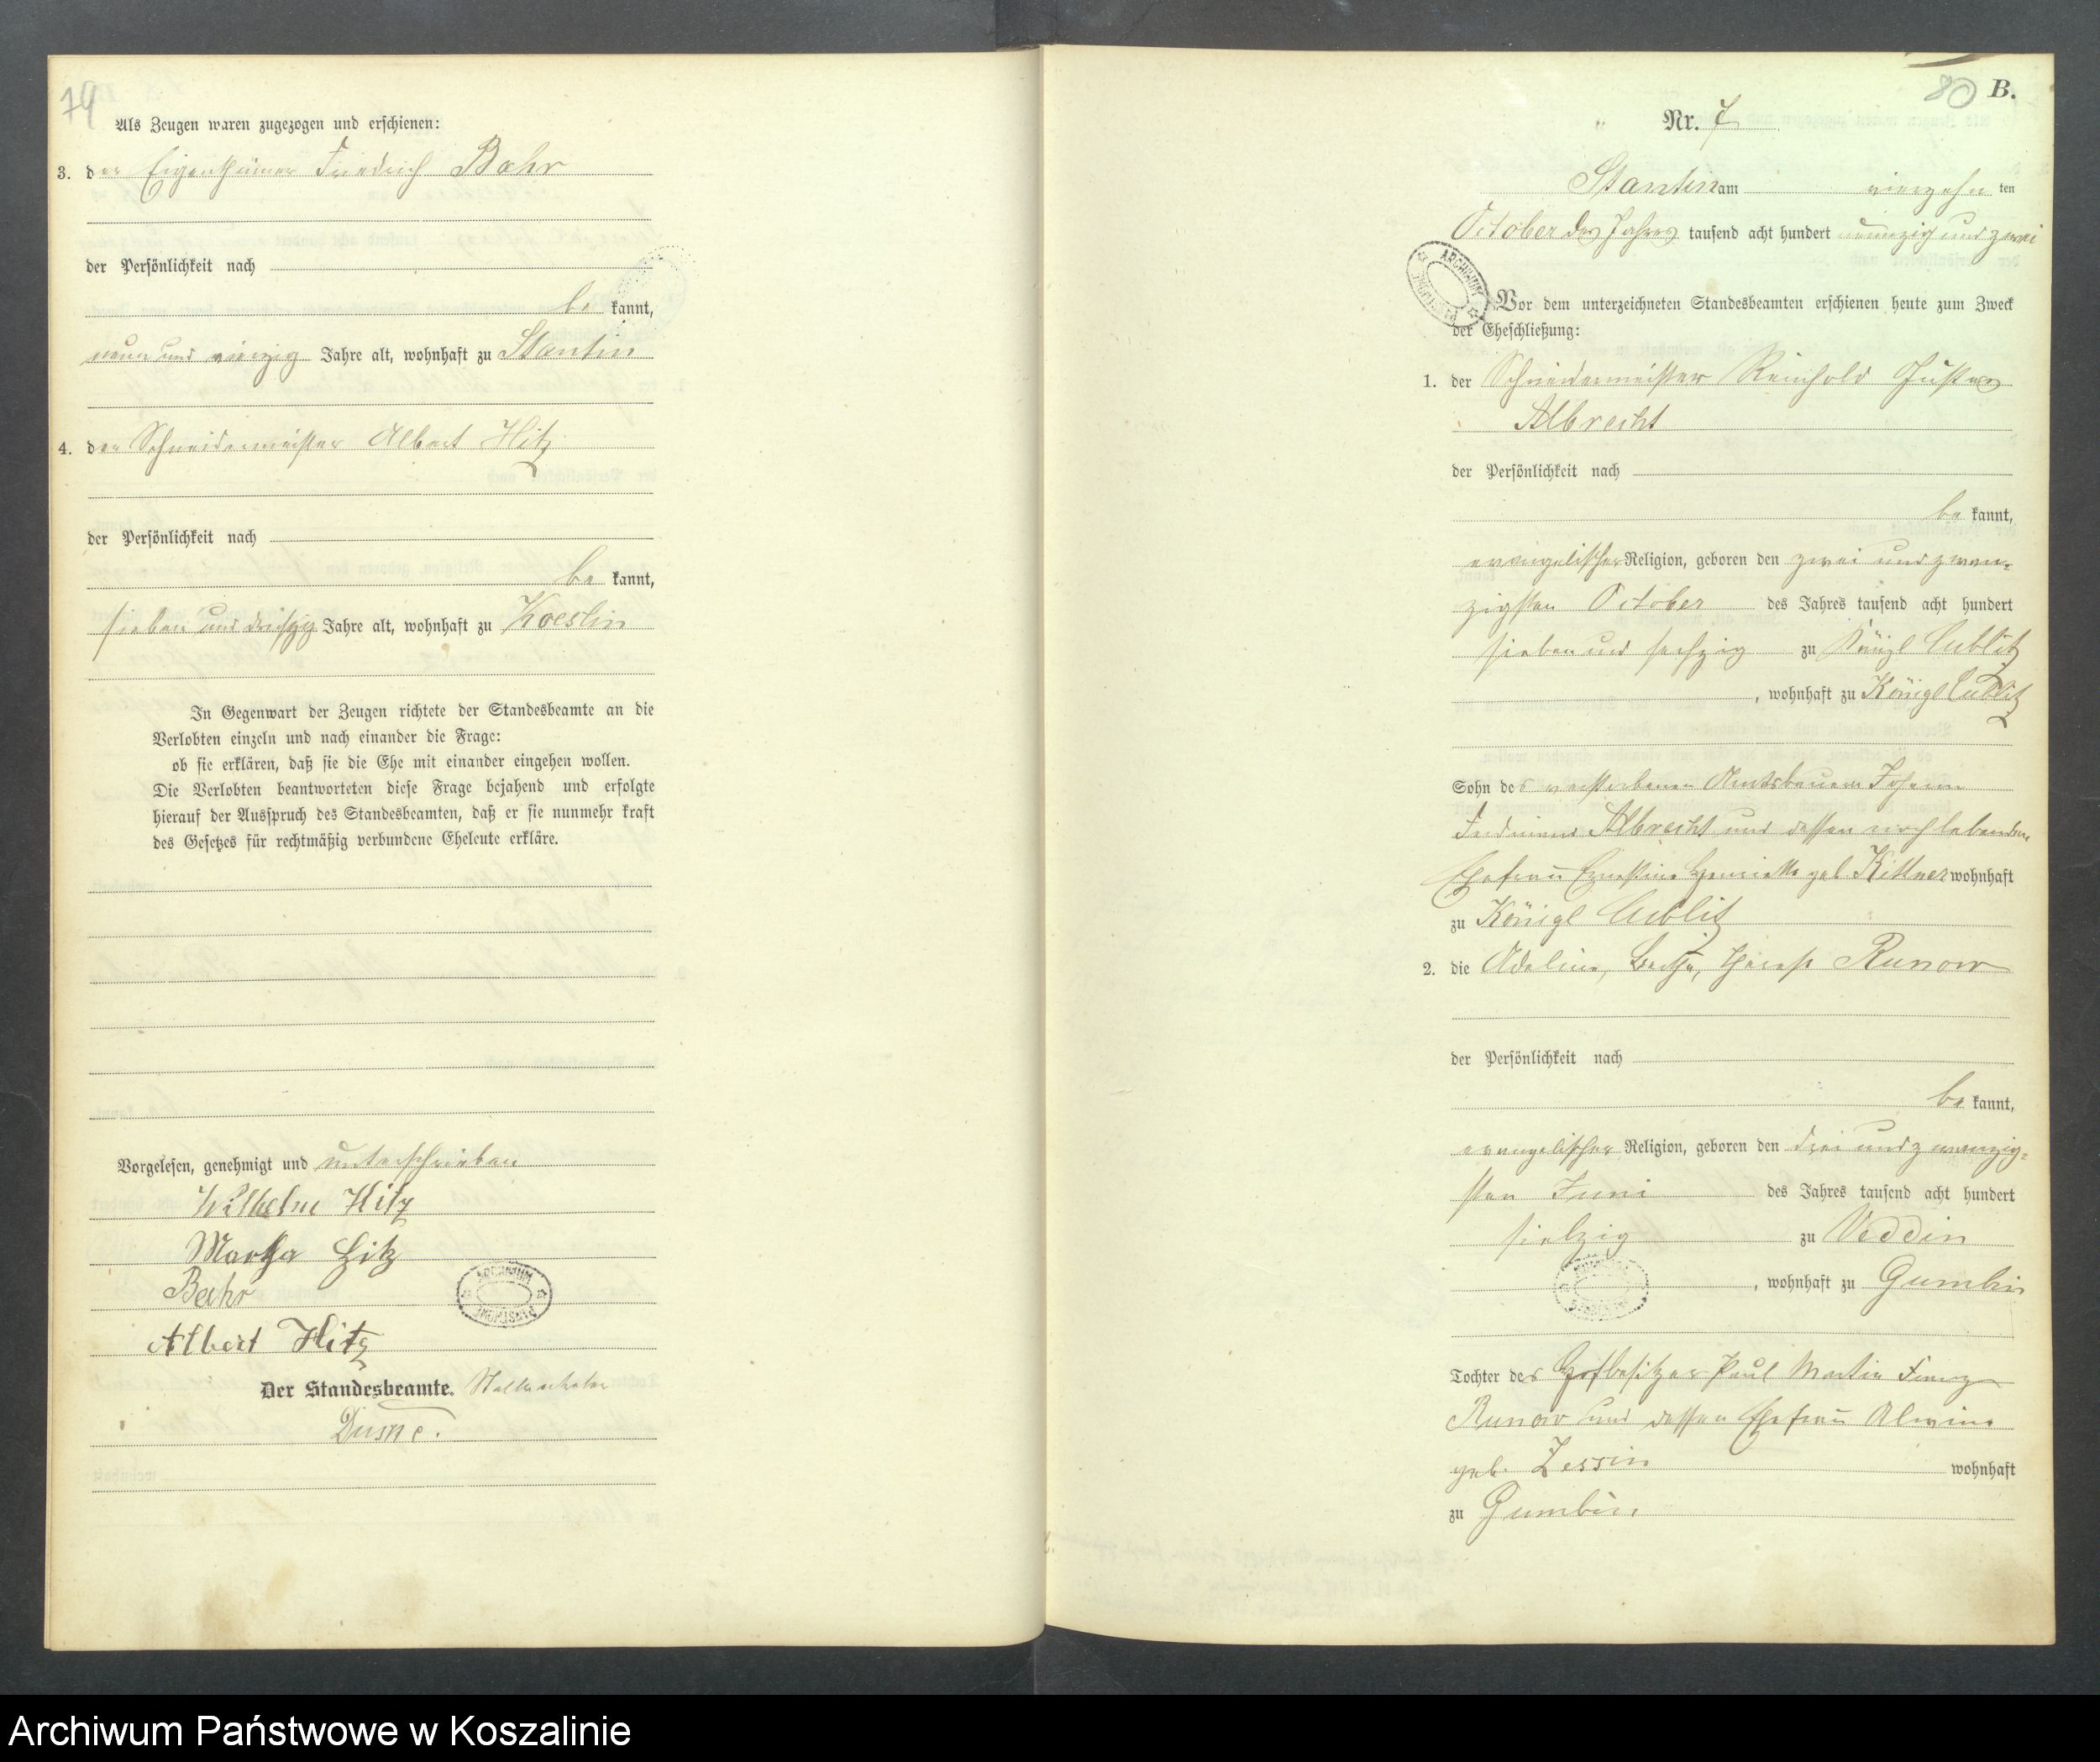 79
Als Zeugen waren zugezogen und erschienen:
3. der Eigenthümer Friedrich Bahr
der Persönlichkeit nach
be kannt,
neun und vierzig Jahre alt, wohnhaft zu Stantin
4. der Schneidermeister Albert Hitz
der Persönlichkeit nach
be kannt,
sieben und dreißig Jahre alt, wohnhaft zu Koeslin
In Gegenwart der Zeugen richtete der Standesbeamte an die
Verlobten einzeln und nach einander die Frage:
ob sie erklären, daß sie die Ehe mit einander eingehen wollen.
Die Verlobten beantworteten diese Frage bejahend und erfolgte
hierauf der Ausspruch des Standesbeamten, daß er sie nunmehr kraft
des Gesetzes für rechtmäßig verbundene Eheleute erkläre.
Vorgelesen, genehmigt und unterschrieben
Wilhelm Hitz
Martha Hitz
Bahr
Albert Hitz
Der Standesbeamte.
ARCHIWUM PAŃSTWOWE
80 B.
Nr. 7
Stantin am vierzehn ten
October des Jahres tausend acht hundert neunzig und zwei
ARCHIWUM PAŃSTWOWE
Vor dem unterzeichneten Standesbeamten erschienen heute zum Zweck
der Eheschließung:
1. der Schneidermeister Reinhold Justus
Albrecht
der Persönlichkeit nach
be kannt,
evangelischer Religion, geboren den zwei und zwan-
zigsten October des Jahres tausend acht hundert
sieben und sechzig zu Königl Cublitz
, wohnhaft zu Königl Cublitz
Sohn des verstorbenen Amtsbauern Johann
Ferdinand Albrecht und dessen noch lebenden
Ehefrau Ernestine Henriette geb. Kittner wohnhaft
zu Königl Cublitz
2. die Adeline, Bertha, Therese Runow
der Persönlichkeit nach
be kannt,
evangelischer Religion, geboren den drei und zwanzig-
sten Juni des Jahres tausend acht hundert
siebzig zu Veddin
, wohnhaft zu Gumbin
ARCHIWUM PAŃSTWOWE
Tochter des Hofbesitzer Paul Martin Franz
Runow und dessen Ehefrau Alwine
geb. Zessin wohnhaft
zu Gumbin
Archiwum Państwowe w Koszalinie